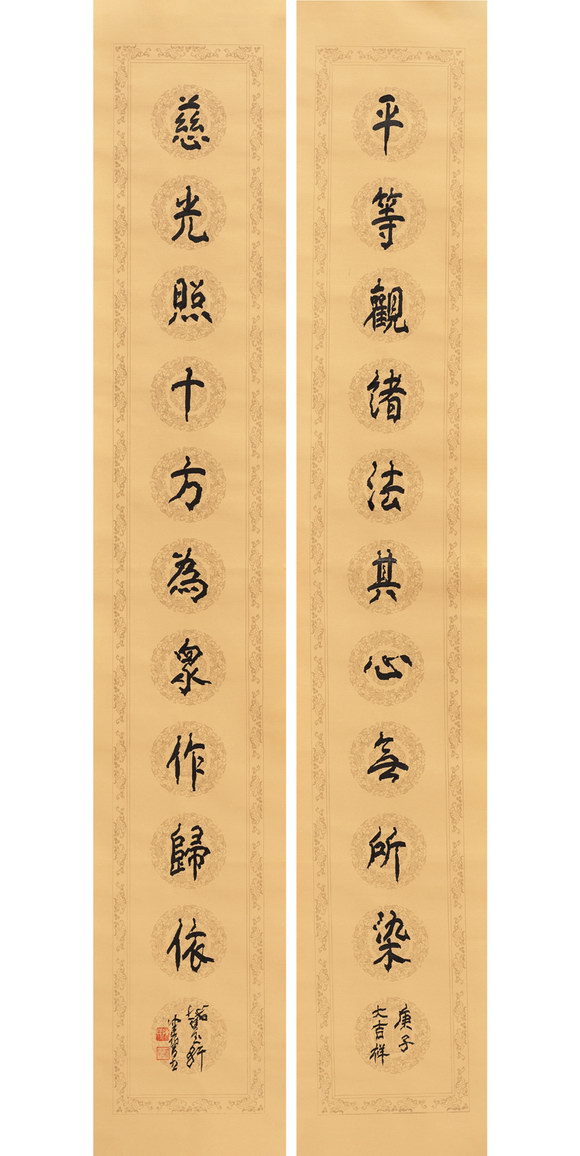 平等觀緒法其心無所染
庚子
大吉祥
慈光照十方為眾作歸依